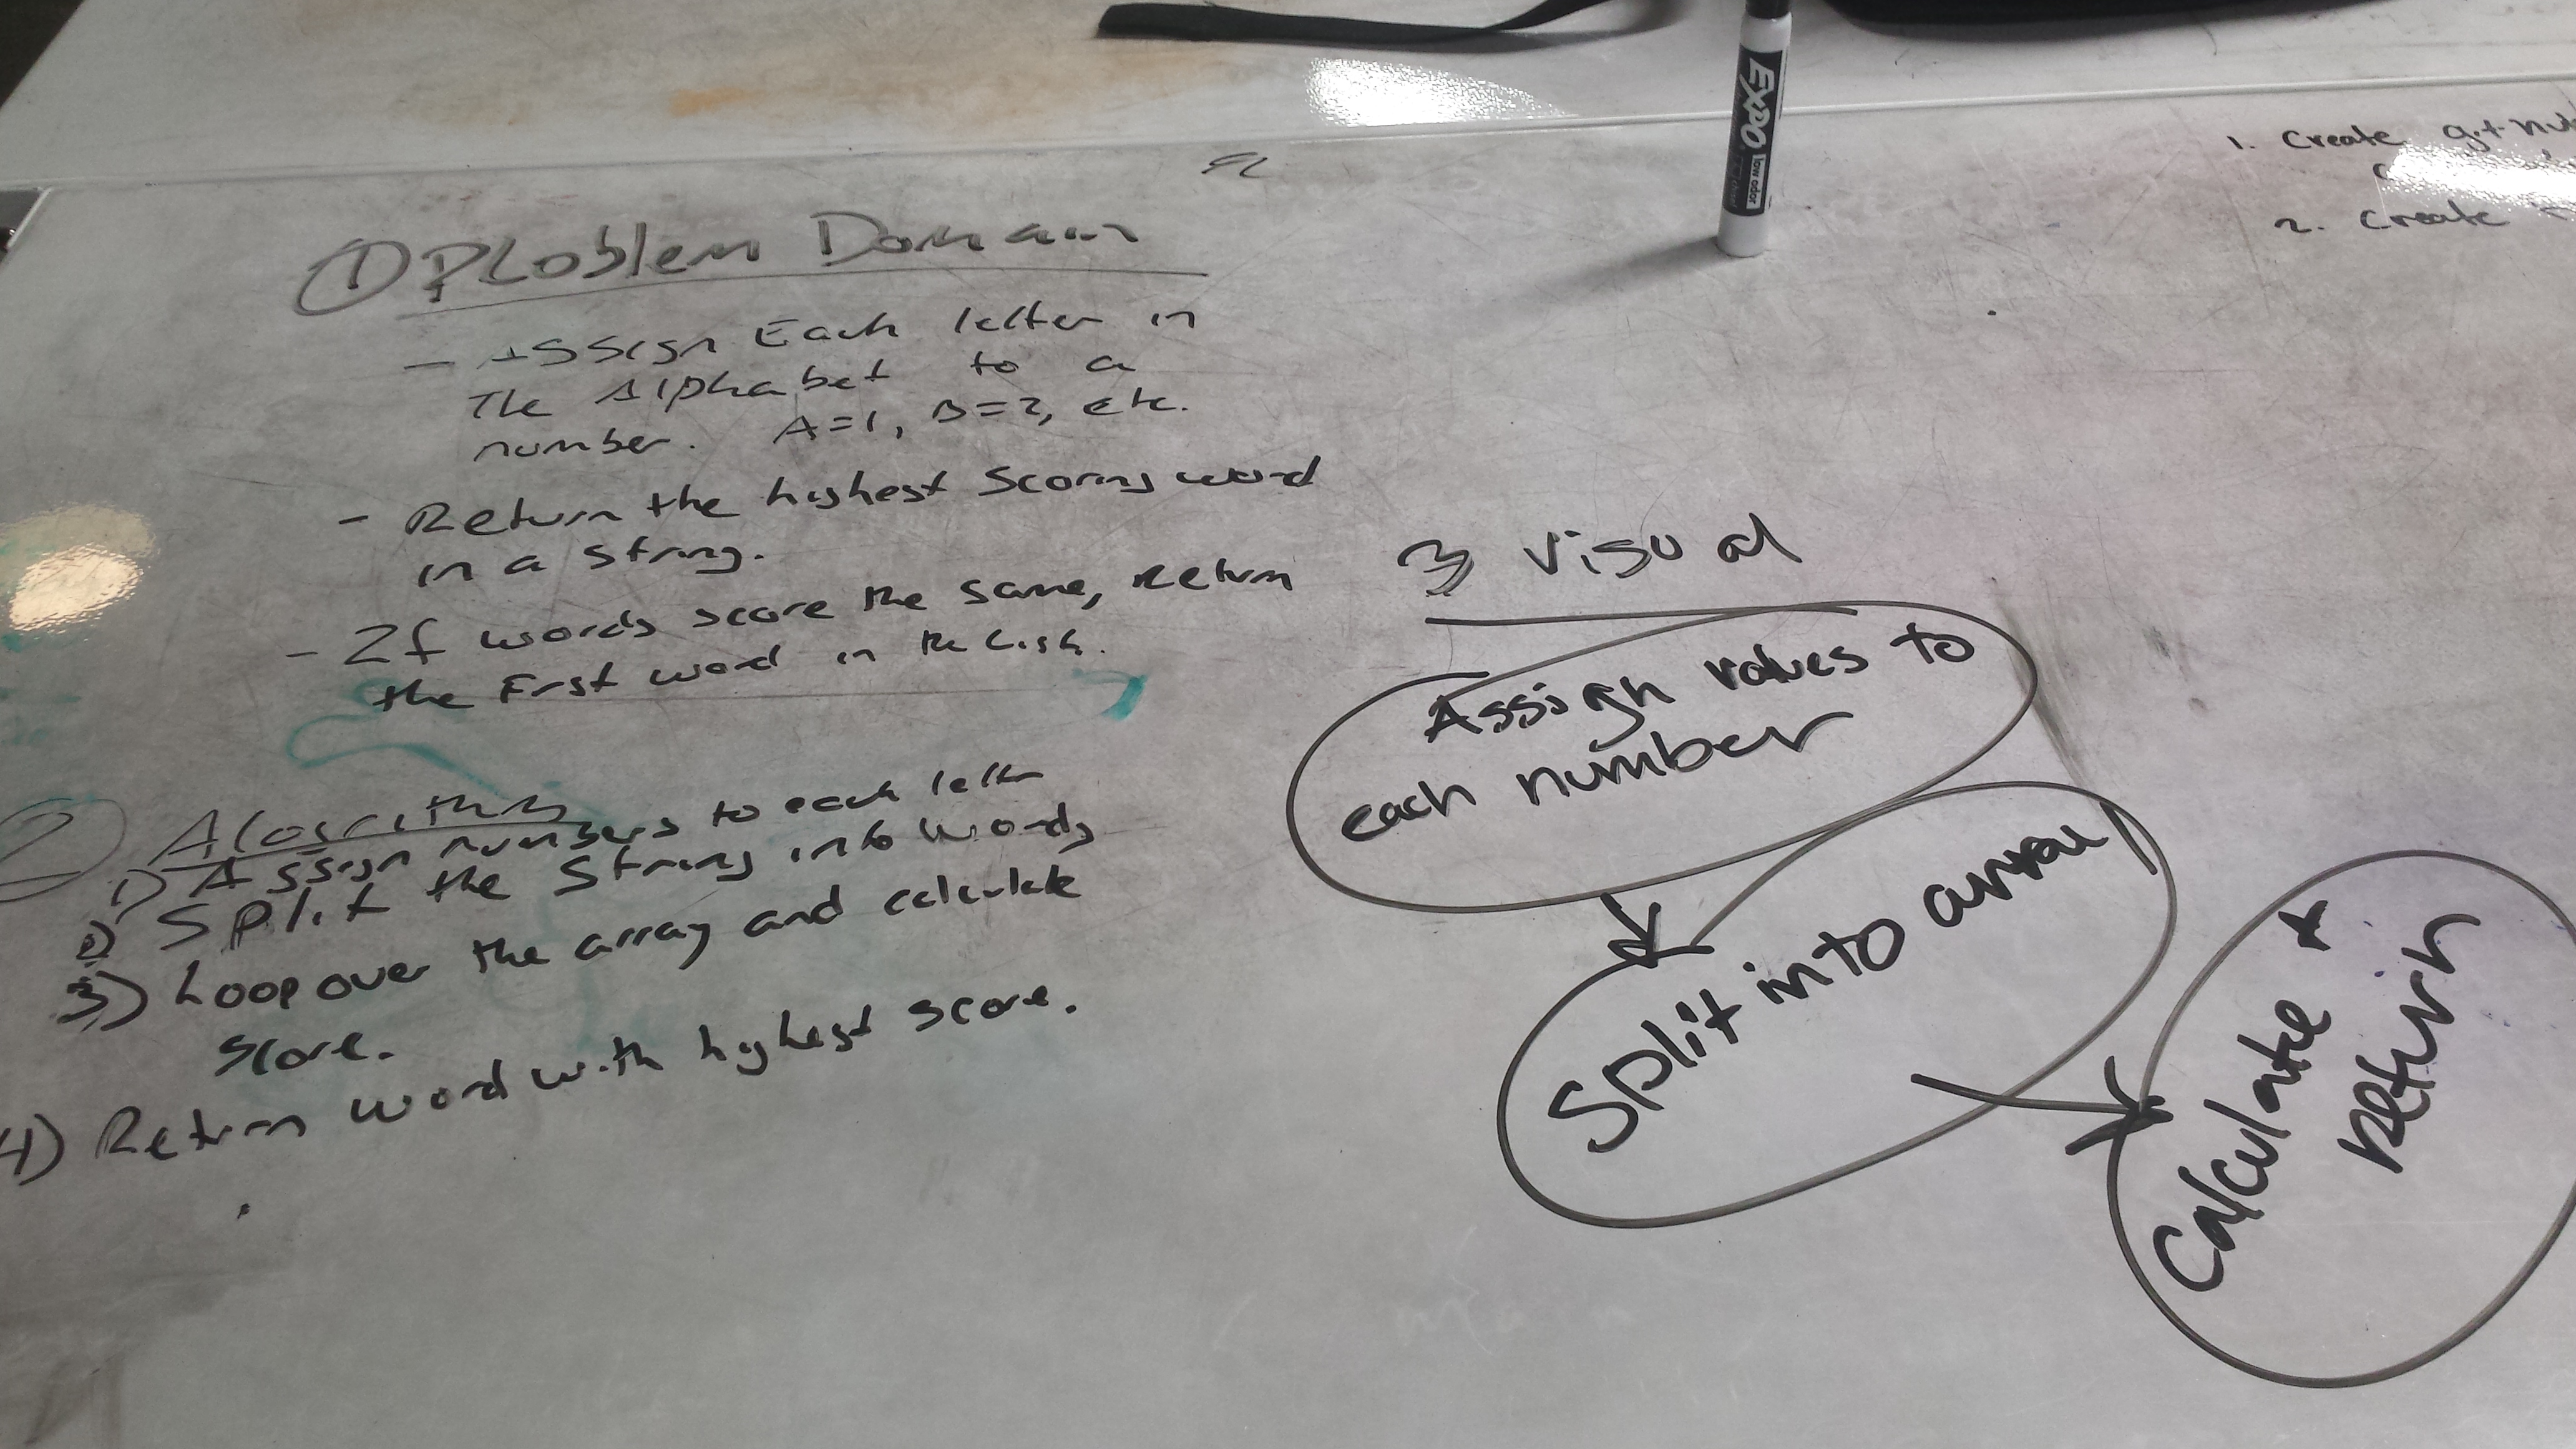 ① Problem Domain
- Assign Each letter in
The Alphabet to a
number. A=1, B=2, etc.
- Return the highest Scoring word
in a string.
- If words score the same, return
the First word in the list.
2 Algorithm
1) Assign numbers to each letter
2) Split the String into words
3) Loop over the array and calculate
score.
4) Return word with highest score.
3 Visual
Assign values to
each number
Split into array
Calculate +
return
EXPO
low odor
1. Create
2. Create